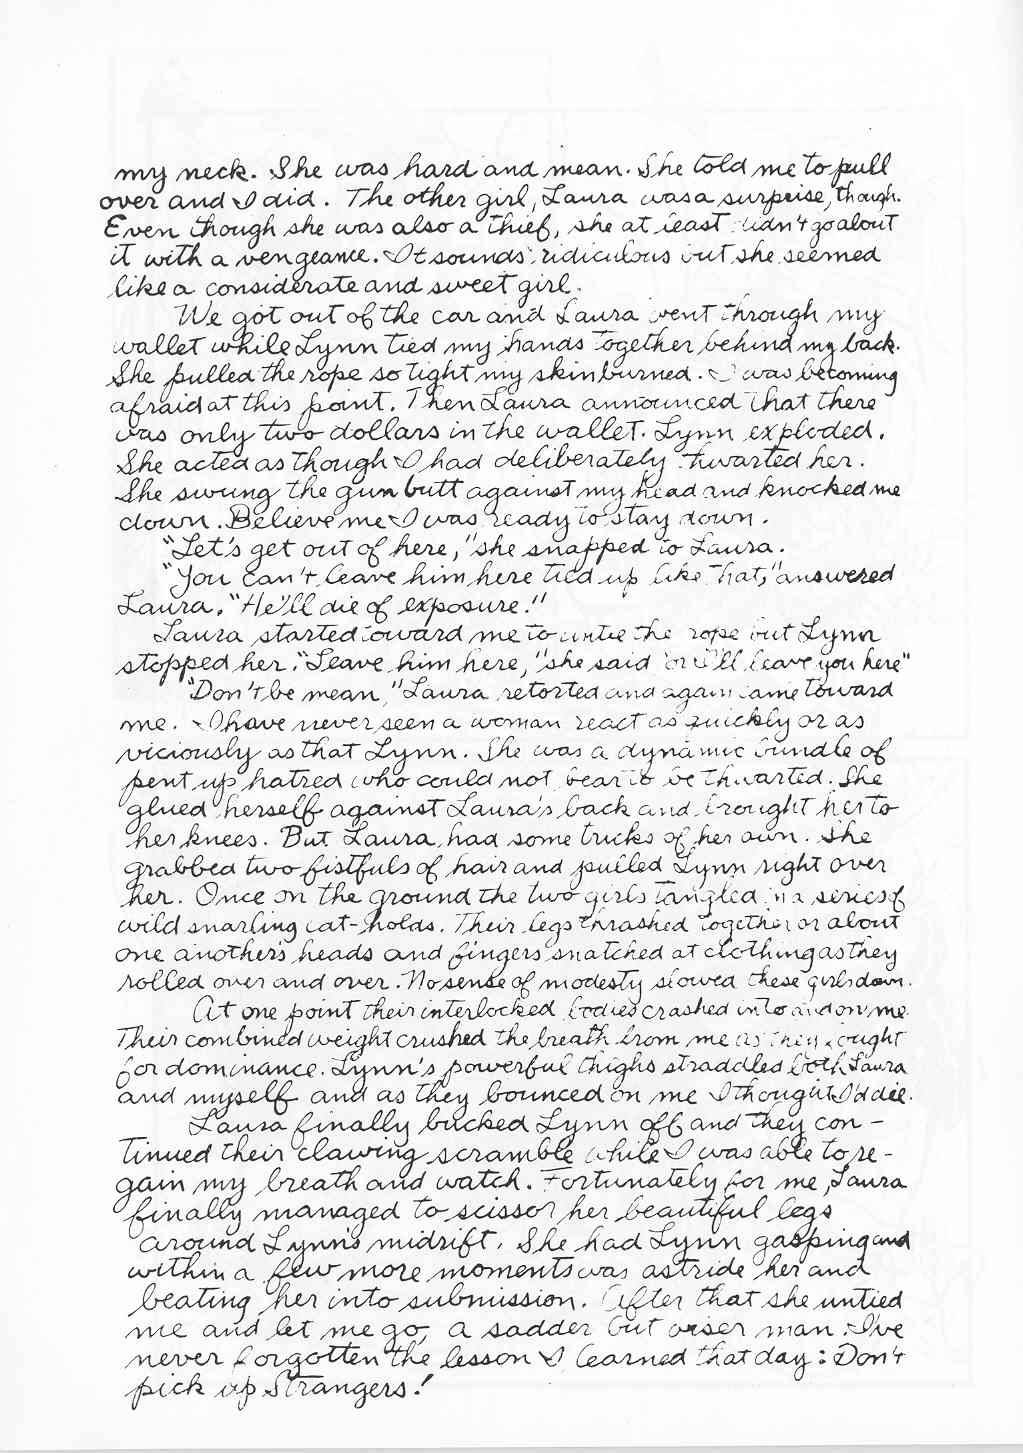 my neck. She was hard and mean. She told me to pull
over and I did. The other girl, Laura was a surprise, though.
Even though she was also a thief, she at least didn't go about
it with a vengeance. It sounds ridiculous but she seemed
like a considerate and sweet girl.
We got out of the car and Laura went through my
wallet while Lynn tied my hands together behind my back.
She pulled the rope so tight my skin burned. I was becoming
afraid at this point. Then Laura announced that there
was only two dollars in the wallet. Lynn exploded.
She acted as though I had deliberately thwarted her.
She swung the gun butt against my head and knocked me
down. Believe me I was ready to stay down.
"Let's get out of here," she snapped to Laura.
"You can't leave him here tied up like that," answered
Laura. "He'll die of exposure."
Laura started toward me to untie the rope but Lynn
stopped her. "Leave him here," she said "or I'll leave you here"
"Don't be mean," Laura retorted and again came toward
me. I have never seen a woman react as quickly or as
viciously as that Lynn. She was a dynamic bundle of
pent up hatred who could not bear to be thwarted. She
glued herself against Laura's back and brought her to
her knees. But Laura had some tricks of her own. She
grabbed two fistfuls of hair and pulled Lynn right over
her. Once on the ground the two girls tangled in a series of
wild snarling cat-holds. Their legs thrashed together or about
one another's heads and fingers snatched at clothing as they
rolled over and over. No sense of modesty slowed these girls down.
At one point their interlocked bodies crashed into and on me.
Their combined weight crushed the breath from me as they fought
for dominance. Lynn's powerful thighs straddled both Laura
and myself and as they bounced on me I thought I'd die.
Laura finally bucked Lynn off and they con-
tinued their clawing scramble while I was able to re-
gain my breath and watch. Fortunately for me, Laura
finally managed to scissor her beautiful legs
around Lynn's midrift. She had Lynn gasping and
within a few more moments was astride her and
beating her into submission. After that she untied
me and let me go, a sadder but wiser man. I've
never forgotten the lesson I learned that day: Don't
pick up strangers!